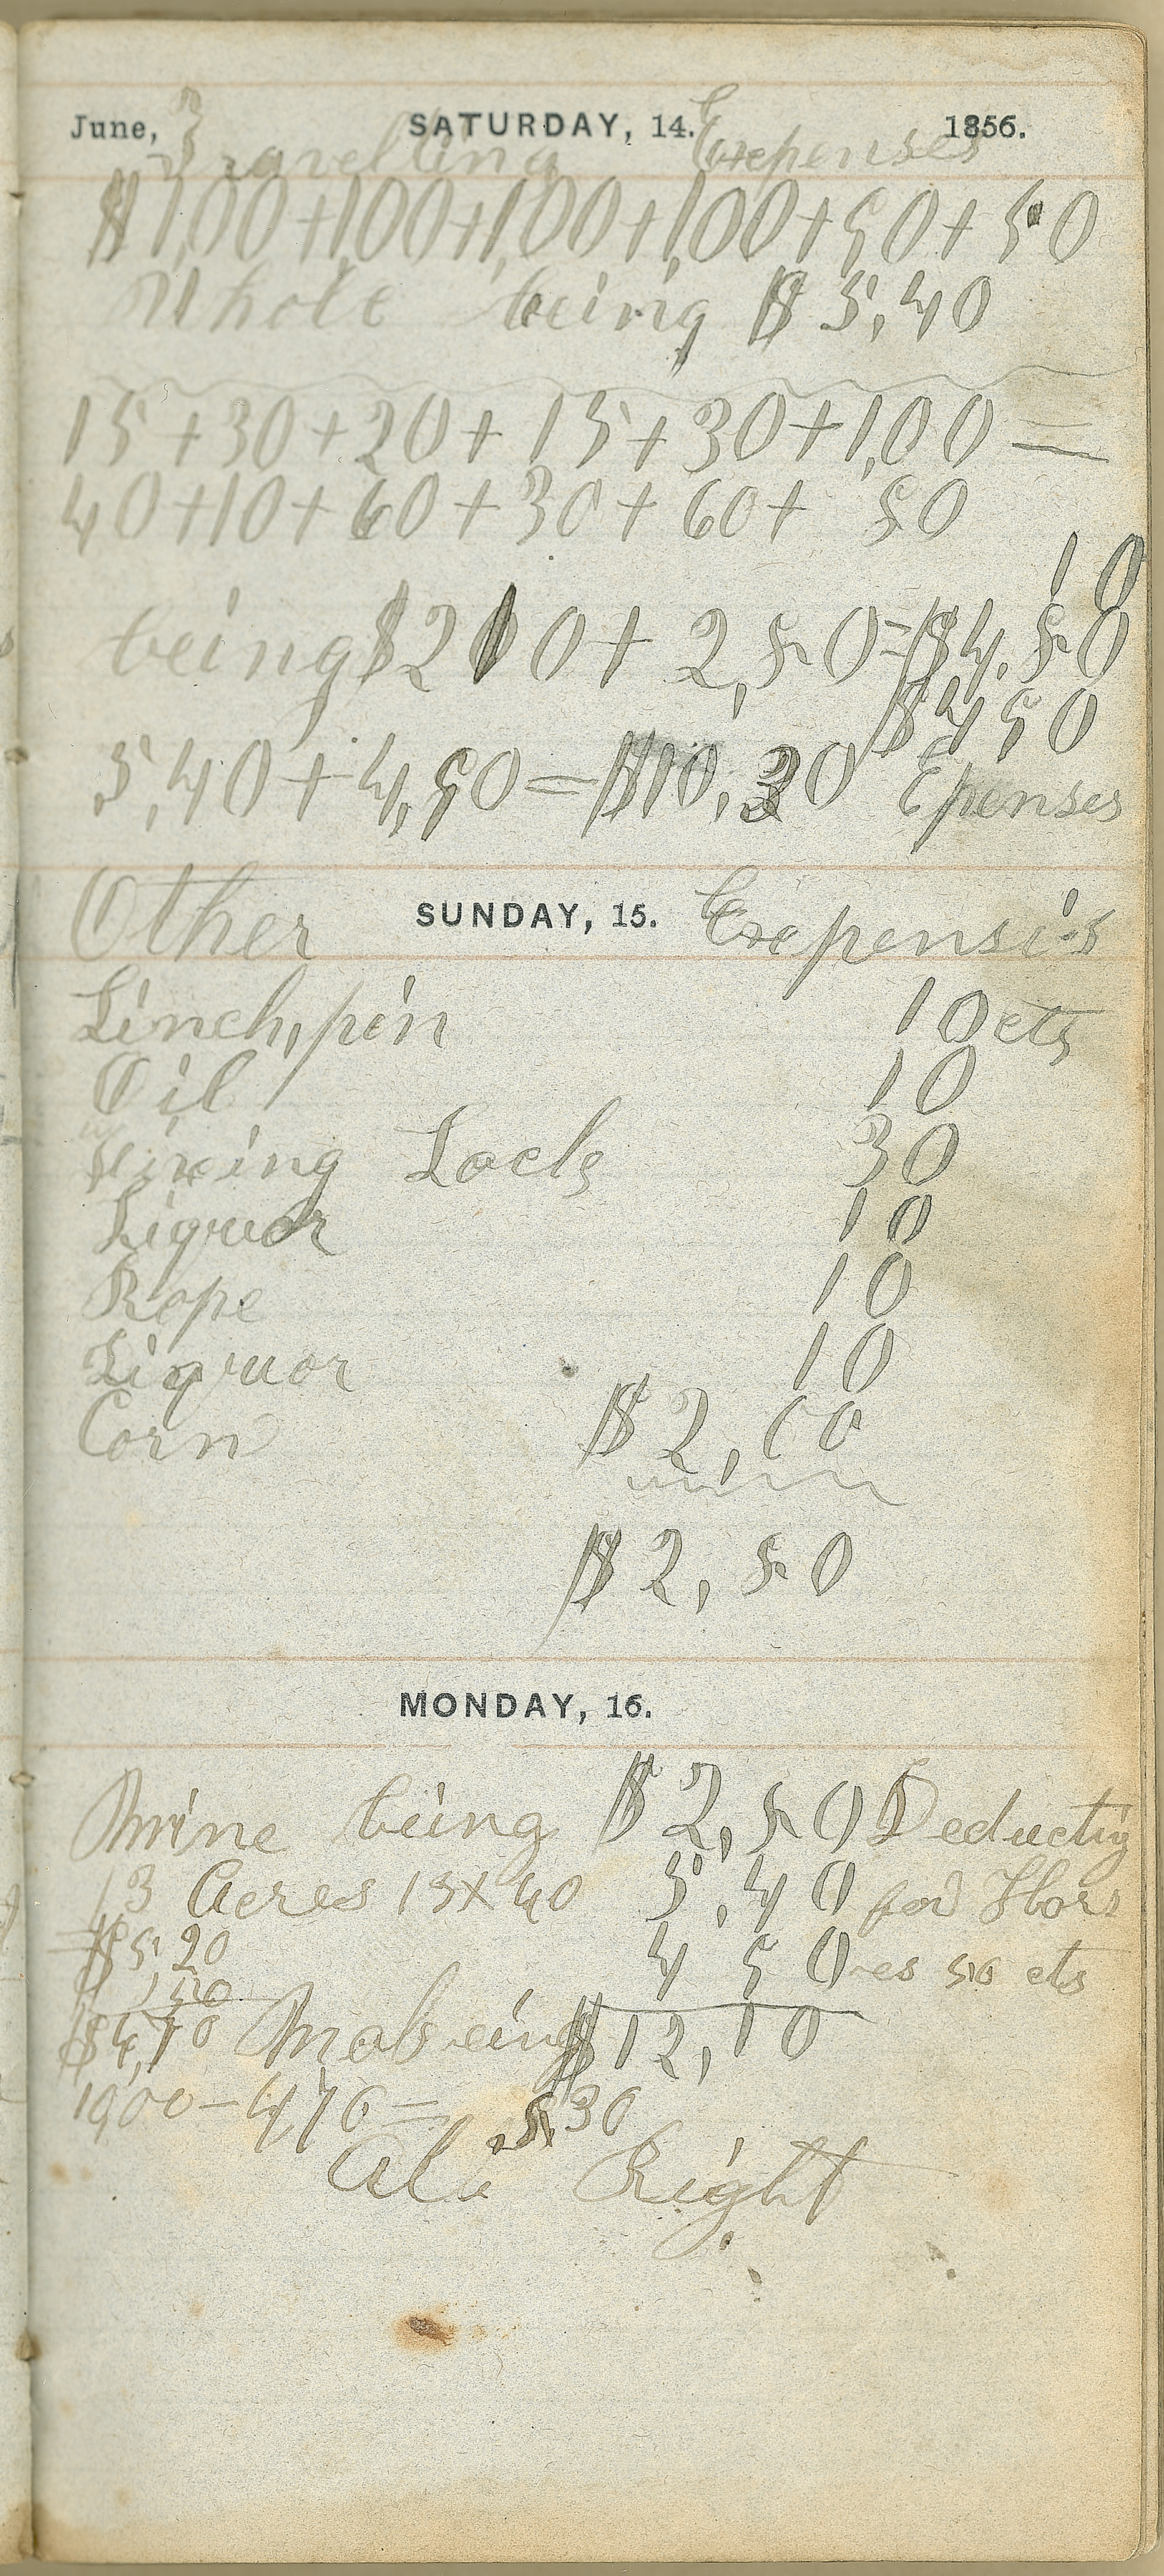 June, SATURDAY, 14. 1856.
Travelling Expenses
$1,00+1,00+1,00+1,00+90+50
Whole being $5,40
15+30+20+15+30+1,00=
40+10+60+30+60+ 50
10
being $210+ 2,50=$4,50
$4,50
5,40+4,90=$10,30 Epenses
Other SUNDAY, 15. Expenses
Linch,pin 10cts
Oil 10
Fixing Lock 30
Liquor 10
Rope 10
Liquor 10
Corn $2,00
$2,50
MONDAY, 16.
Mine being $2,50 Deducting
13 Acres 13X40 5,40 for Hors
$5,20 4 50 es 50 cts
,50
$4,70 Makeing $12,10
1000-470= 5,30
All Right